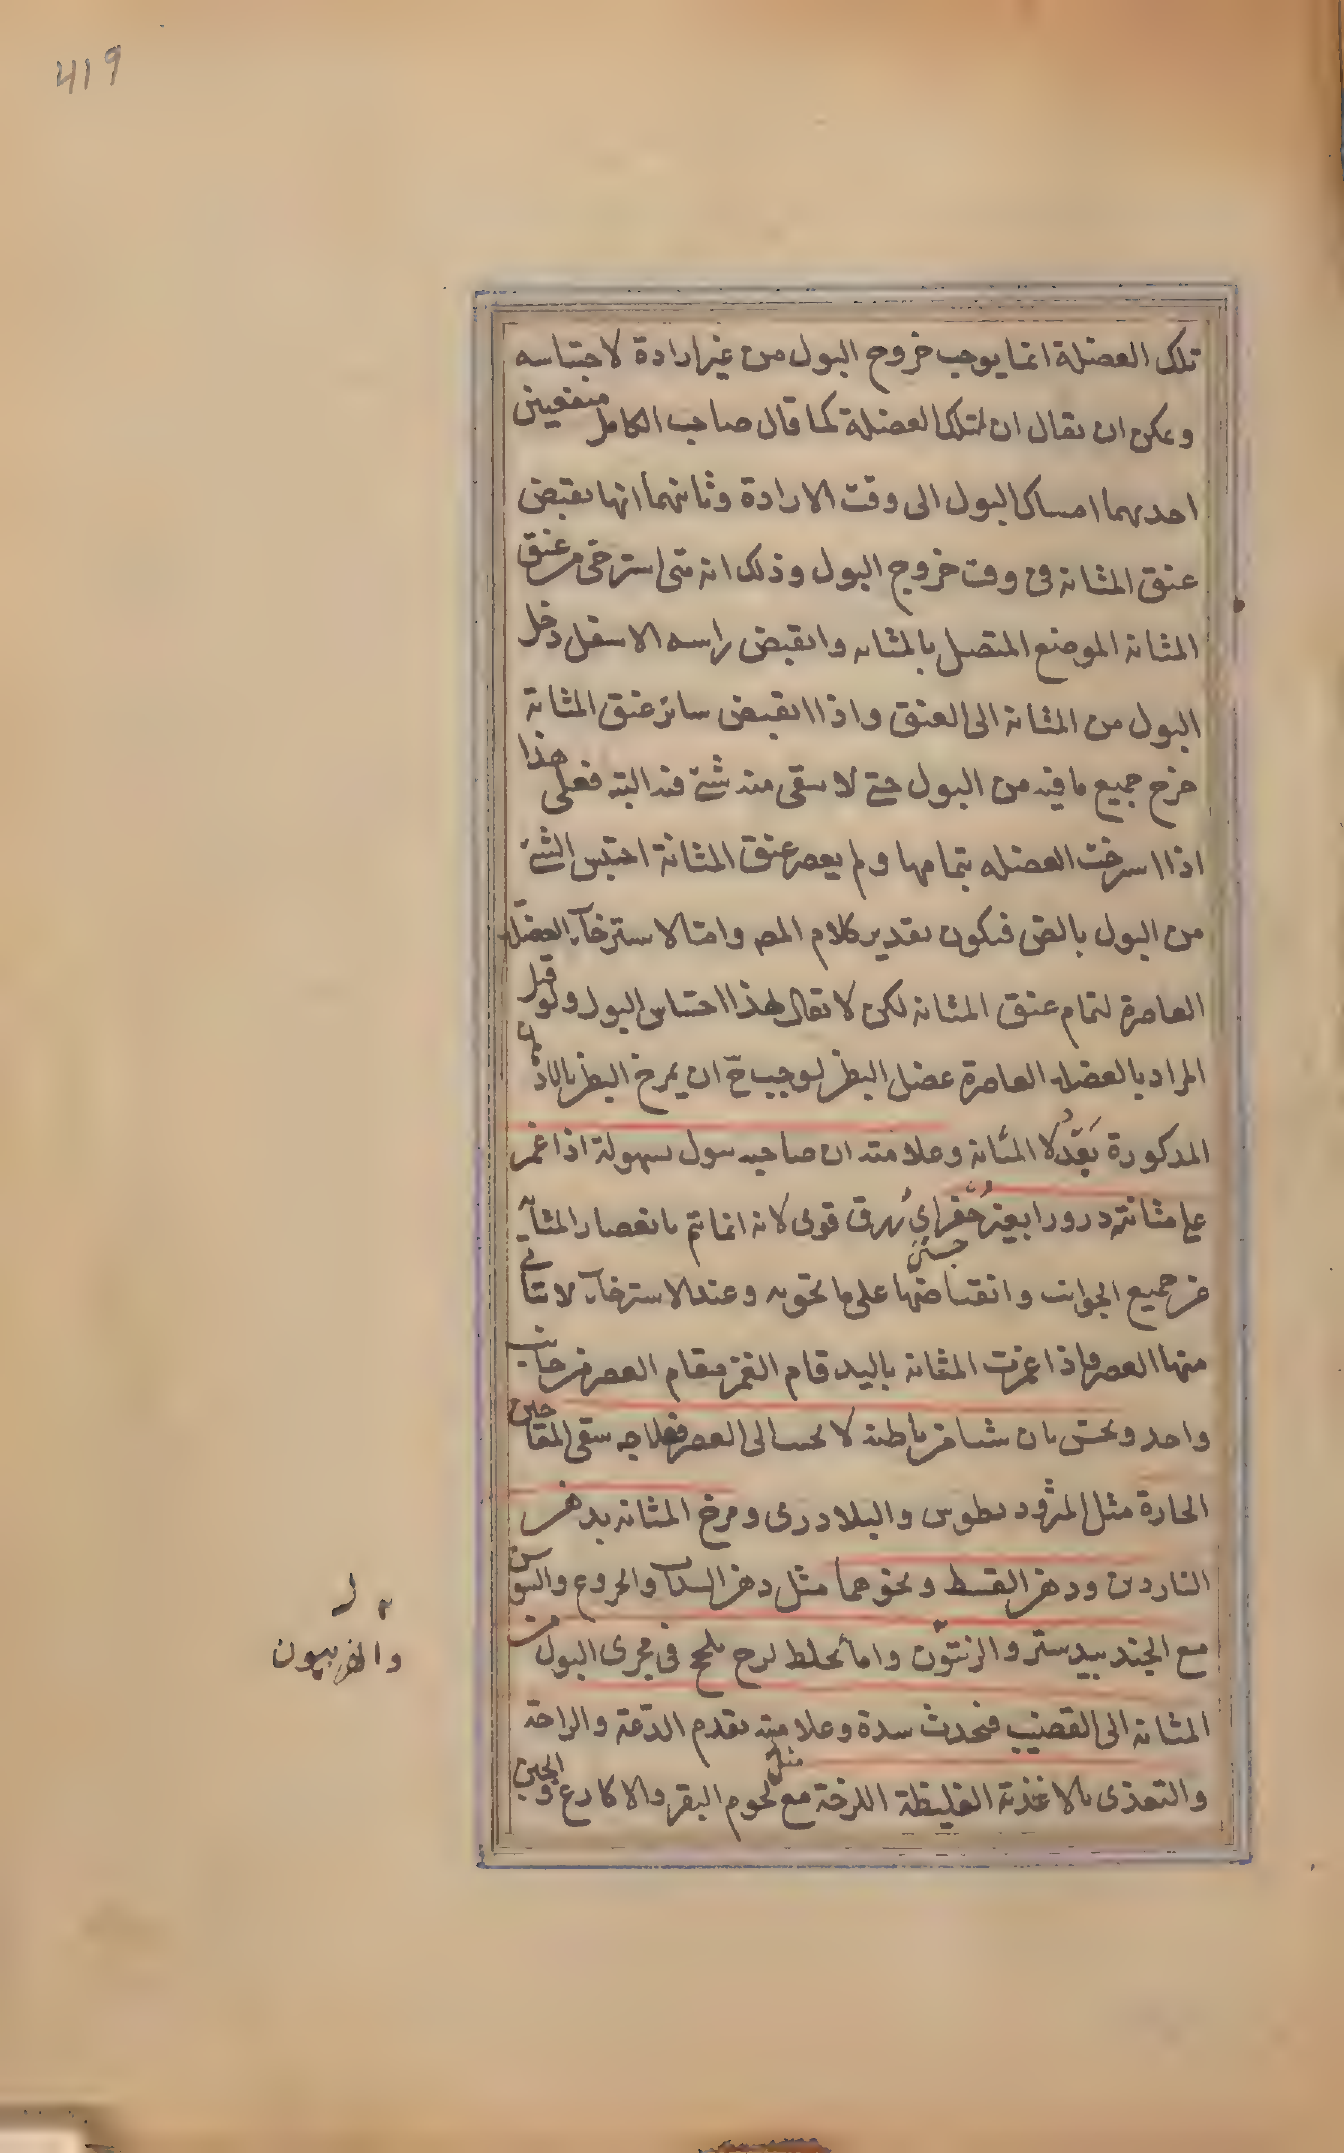 419
تلك العضلة انما يوجب خروج البول من غير ارادة لاحتباسه
ويمكن ان يقال ان لتلك العضلة كما قال صاحب الكامل منفعتين
احديهما امساك البول الى وقت الارادة وثانيهما انها يقبض
عنق المثانة فى وقت خروج البول وذلك انه متى استرخى من عنق
المثانة الموضع المتصل بالمثانه وانقبض راسه الاسفل دخل
البول من المثانة الى العنق واذا انقبض سائر عنق المثانة
خرج جميع ما فيه من البول حتى لا يبقى منه شئ فيه البتة فعلى هذا
اذا استرخت العضله بتمامها ولم يعصر عنق المثانة احتبس الشئ
من البول بالعنق فيكون تقدير كلام المص واما لاسترخآء العضلة
العاصرة لتمام عنق المثانه لكن لا يقال لهذا احتباس البول ولو قيل
المراد بالعضله العاصرة عضل البطن لوجب ح ان يمرخ البطن بالادهان
المذكورة بعد لا المثانه وعلامته ان صاحبه يبول بسهولة اذا غمز
على مثانته درورا بغير حفز اى زرق قوى لانه انما يتم بانعصار المثانة
من جميع الجوانب وانقباضها على ما تحويه وعند الاسترخآء لا يتأتى
منها العصر فاذا غمزت المثانه باليد قام الغمز مقام العصر من جانب
واحد ويحس بان شيئا من باطنه لا يجيب الى العصر فعلاجه سقى المعاجين
الحارة مثل المثروديطوس والبلادرى ومرخ المثانه بدهن
الناردين ودهن القسط ونحوهما مثل دهن السداب والخروع والسوسن
مع الجندبيدستر والزنتون واما لخلط لزج يلحج فى مجرى البول من
والفربيون
المثانه الى القضيب فيحدث سدة وعلامته تقدم الدعة والراحة
والتغذى بالاغذية الغليظة اللزجة مثل لحوم البقر والاكارع والجبن